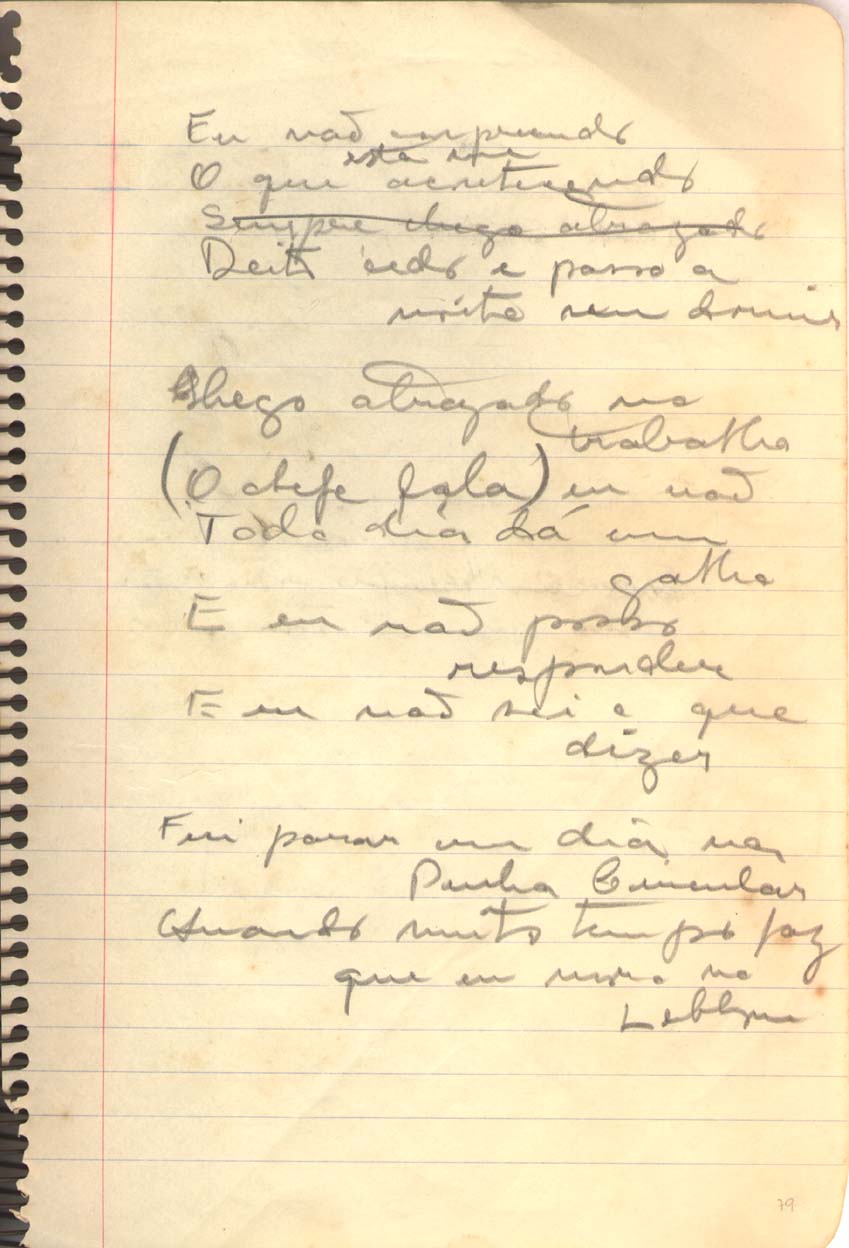 Eu não compreendo
está me
O que acontecendo
Sempre chego atrazado
Deito cedo e passo a
noite sem dormir
Chego atrazado no
trabalho
(O chefe fala) eu não
Todo dia dá um
galho
E eu não posso
responder
E eu não sei o que
dizer
Fui parar um dia na
Penha Circular
Quando muito tempo faz
que eu moro no
Leblon
79